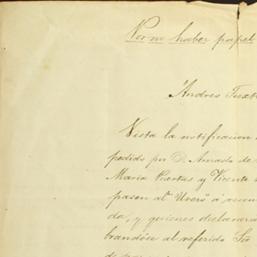 Por no haber papel
Andres Tuxt
Vista la notificacion
pedido por D. Amado de
Maria Puertas y Vicente
pasen al
da, y quienes declarara
brandose al referido Sor